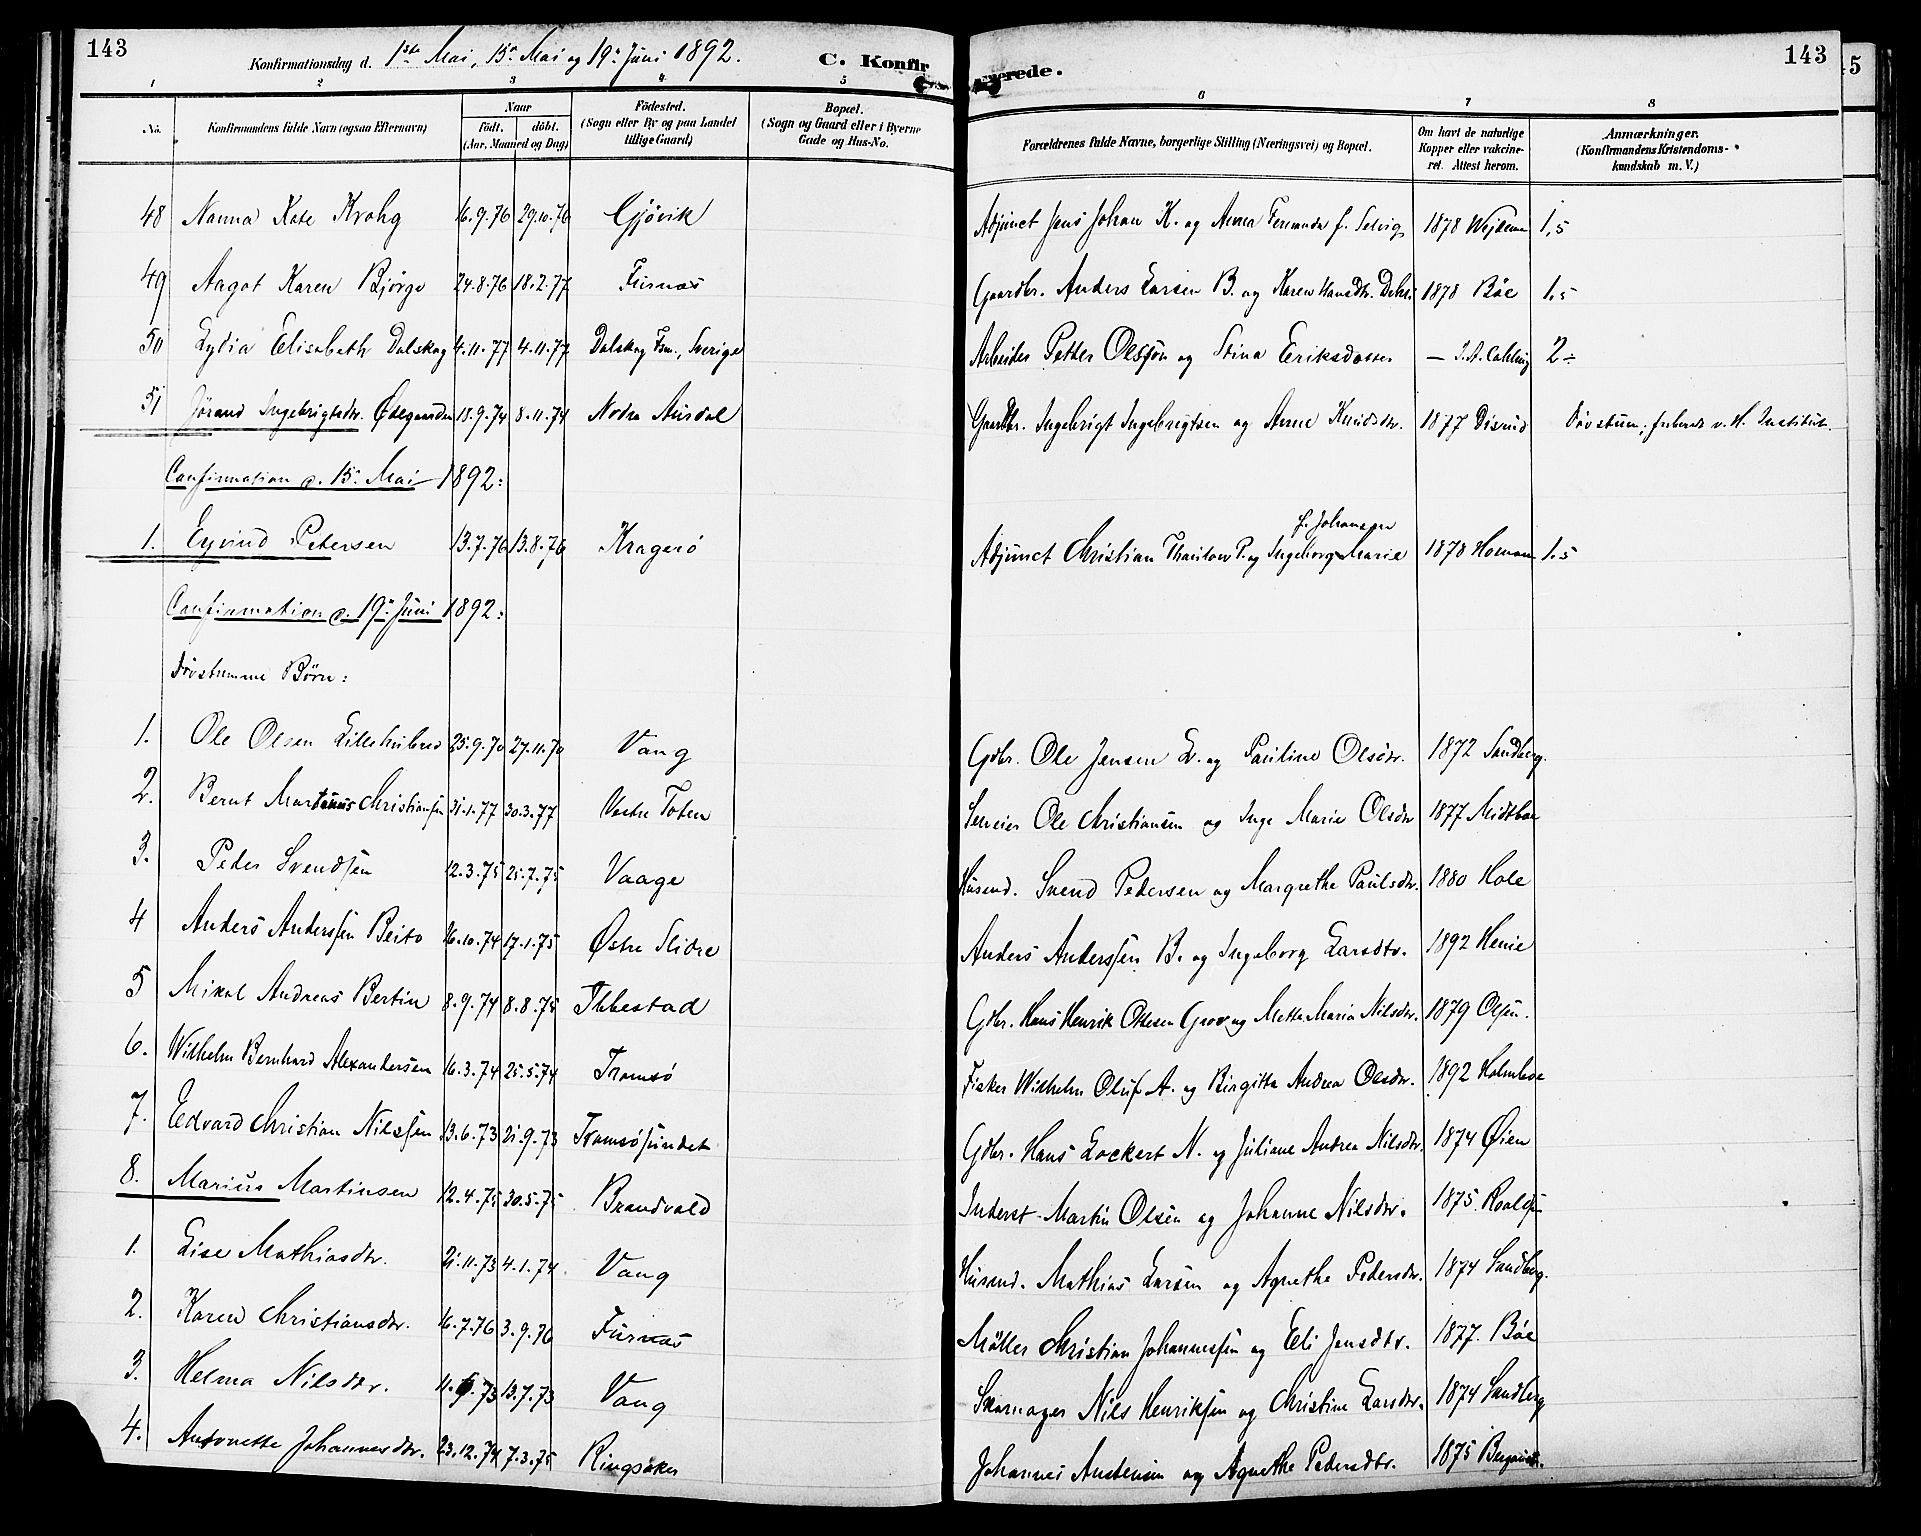 143
Konfirmationsdag d. 1ste Mai, 15de Mai og 19de Juni 1892.
C. Konfirmerede.
143
1 2 3 4 5 6 7 8
No. Konfirmandens fulde Navn (ogsaa Efternavn) Naar født. døbt. (Aar, Maaned og Dag) Födested. (Sogn eller By og paa Landet tillige Gaard) Bopæl. (Sogn og Gaard eller i Byerne Gade og Hus-No. Forældrenes fulde Navne, borgerlige Stilling (Næringsvei) og Bopæl. Om havt de naturlige Kopper eller vakcineret. Attest herom. Anmærkninger. (Konfirmandens Kristendomskundskab m. V.)
48 Nanna Kate Krohg 16.9.76 29.10.76 Gjøvik Adjunct Jens Johan K. og Anna Fernanda f. Selvig 1878 1,5
49 Aagot Karen Bjørge 24.8.76 18.2.77 Furnæs Gaardbr. Anders Larsen B. og Karen Hansdtr. Dehli 1878 Böe 1,5
50 Lydia Elisabeth Dalskog 4.11.77 4.11.77 Dalskog Fsm., Sverige Arbeider Petter Olsson og Stina Eriksdotter — 2÷
51 Jørand Ingebrigtsdtr. Ødegaarden 18.9.74 8.11.74 Nodre Aurdal Gaardbr. Ingebrigt Ingebrigtsen og Anne Knudsdtr. 1877 Disrud Døvstum, forbered. v. H. Institut.
Confirmation d. 15de Mai 1892:
1. Eyvind Petersen 13.7.76 13.8.76 Kragerø Adjunct Christian Thaulow P. og Ingeborg Marie f. Johansen 1878 Homan 1.5
Confirmation d. 19de Juni 1892:
Døvstumme Børn:
1. Ole Olsen Lillehubred 25.9.70 27.11.70 Vang Gdbr. Ole Jensen L. og Pauline Olsdtr. 1872 Sandberg.
2. Bernt Martinius Christiansen 31.1.77 30.3.77 Vestre Toten Selveier Ole Christiansen og Inge Marie Olsdtr 1877 Midtboe
3. Peder Svendsen 12.3.75 25.7.75 Vaage Husmd. Svend Pedersen og Margrethe Paulsdtr. 1880 Hole
4 Anders Anderssen Beito 16.10.74 17.1.75 Østre Slidre Anders Anderssen B. og Ingeborg Larsdtr. 1892 Henie
5 Mikal Andreas Bertin 8.9.74 8.8.75 Ibbestad Gdbr. Hans Henrik Ottesen Grov og Mette Maria Nilsdtr. 1879 Olsen.
6. Wilhelm Bernhard Alexandersen 16.3.74 25.5.74 Tromsø Fisker Wilhelm Oluf A. og Birgitte Andrea Olsdtr. 1892 Holmboe
7. Edvard Christian Nilssen 13.6.73 21.9.73 Tromsøsundet Gdbr. Hans Lockert N. og Juliane Andrea Nilsdtr. 1874 Øien
8. Marius Martinsen 12.4.75 30.5.75 Brandvold Inderst Martin Olsen og Johanne Nilsdtr. 1875
1. Lise Mathiasdtr. 21.11.73 4.1.74 Vang Husmd. Mathias Larsen og Agnethe Pedersdtr. 1874 Sandberg.
2. Karen Christiansdtr. 16.7.76 3.9.76 Furnæs Møller Christian Johannessen og Eli Jensdtr. 1877. Böe
3. Helma Nilsdtr. 11.6.73 13.7.73 Vang Skomager Nils Henriksen og Christine Larsdtr. 1874 Sandberg
4. Antonette Johannesdtr. 23.12.74 7.3.75 Ringsaker Johannes Austensen og Agnethe Pedersdtr. 1875